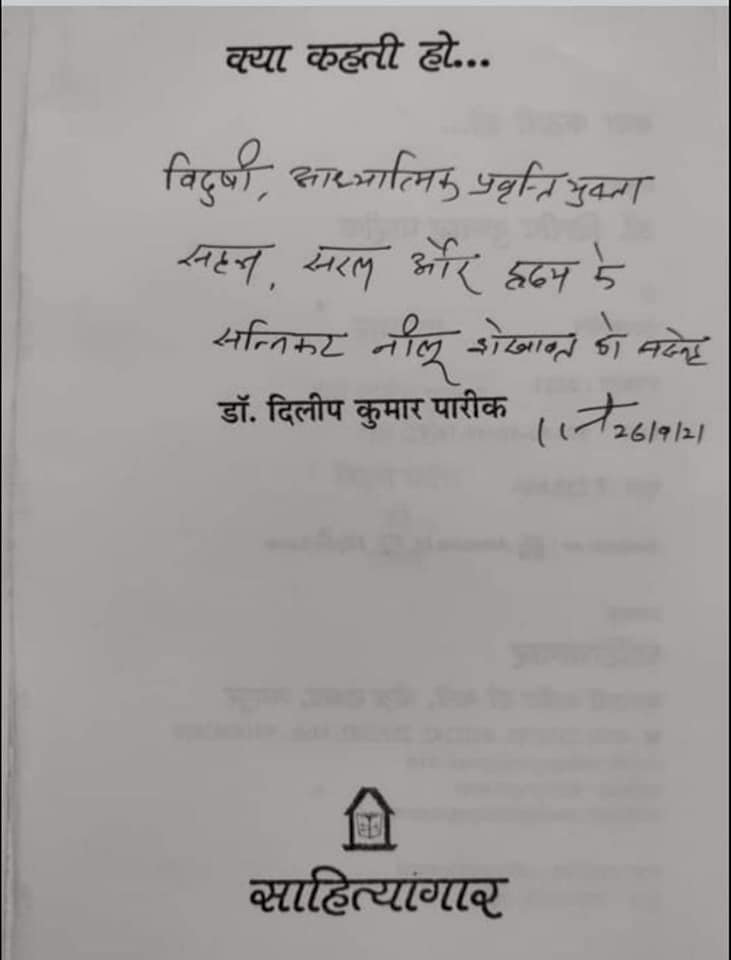 क्या कहती हो...
विदुषी, आध्यात्मिक प्रवृत्ति युक्ता
सहज, सरल और हृदय के
सन्निकट नीलू शेखावत को सस्नेह
डॉ. दिलीप कुमार पारीक
26/9/21
साहित्यागार